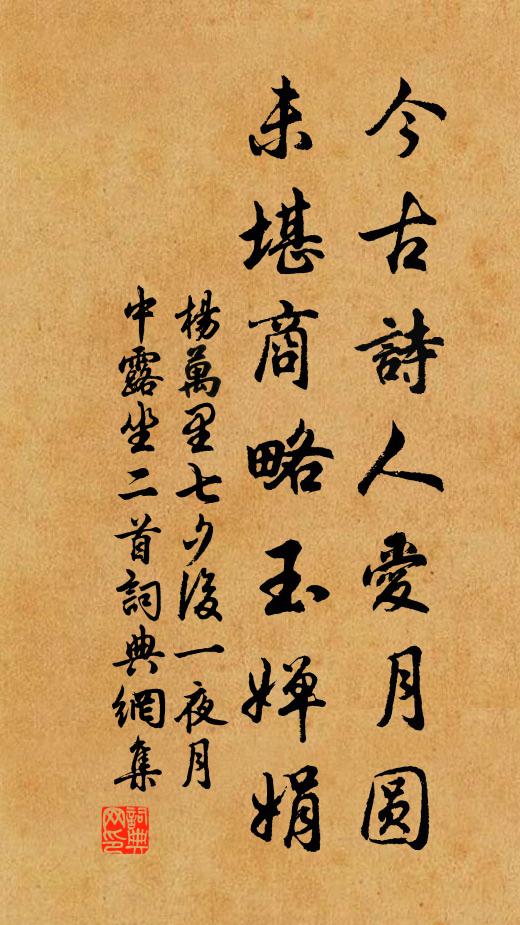 今古詩人愛月圆
未堪商略玉婵娟
楊萬里七夕後一夜月
中露坐二首詞典網集
詞典
网印